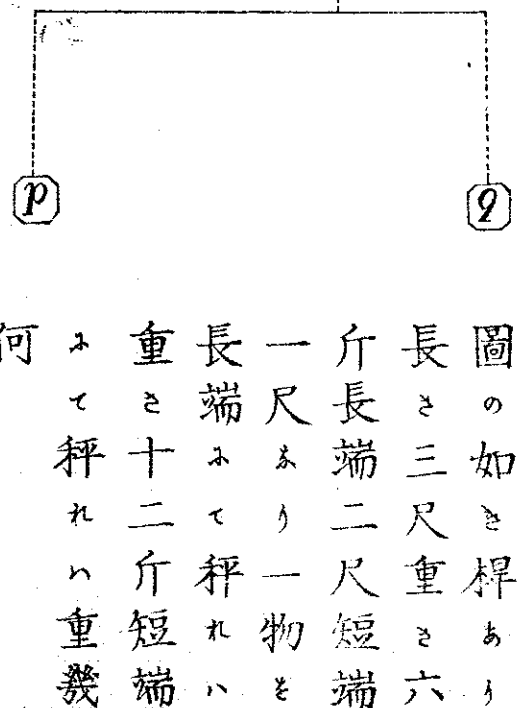 p
q
圖の如き桿あり
長さ三尺重さ六
斤長端二尺短端
一尺なり一物を
長端にて秤れハ
重さ十二斤短端
にて秤れハ重幾
何